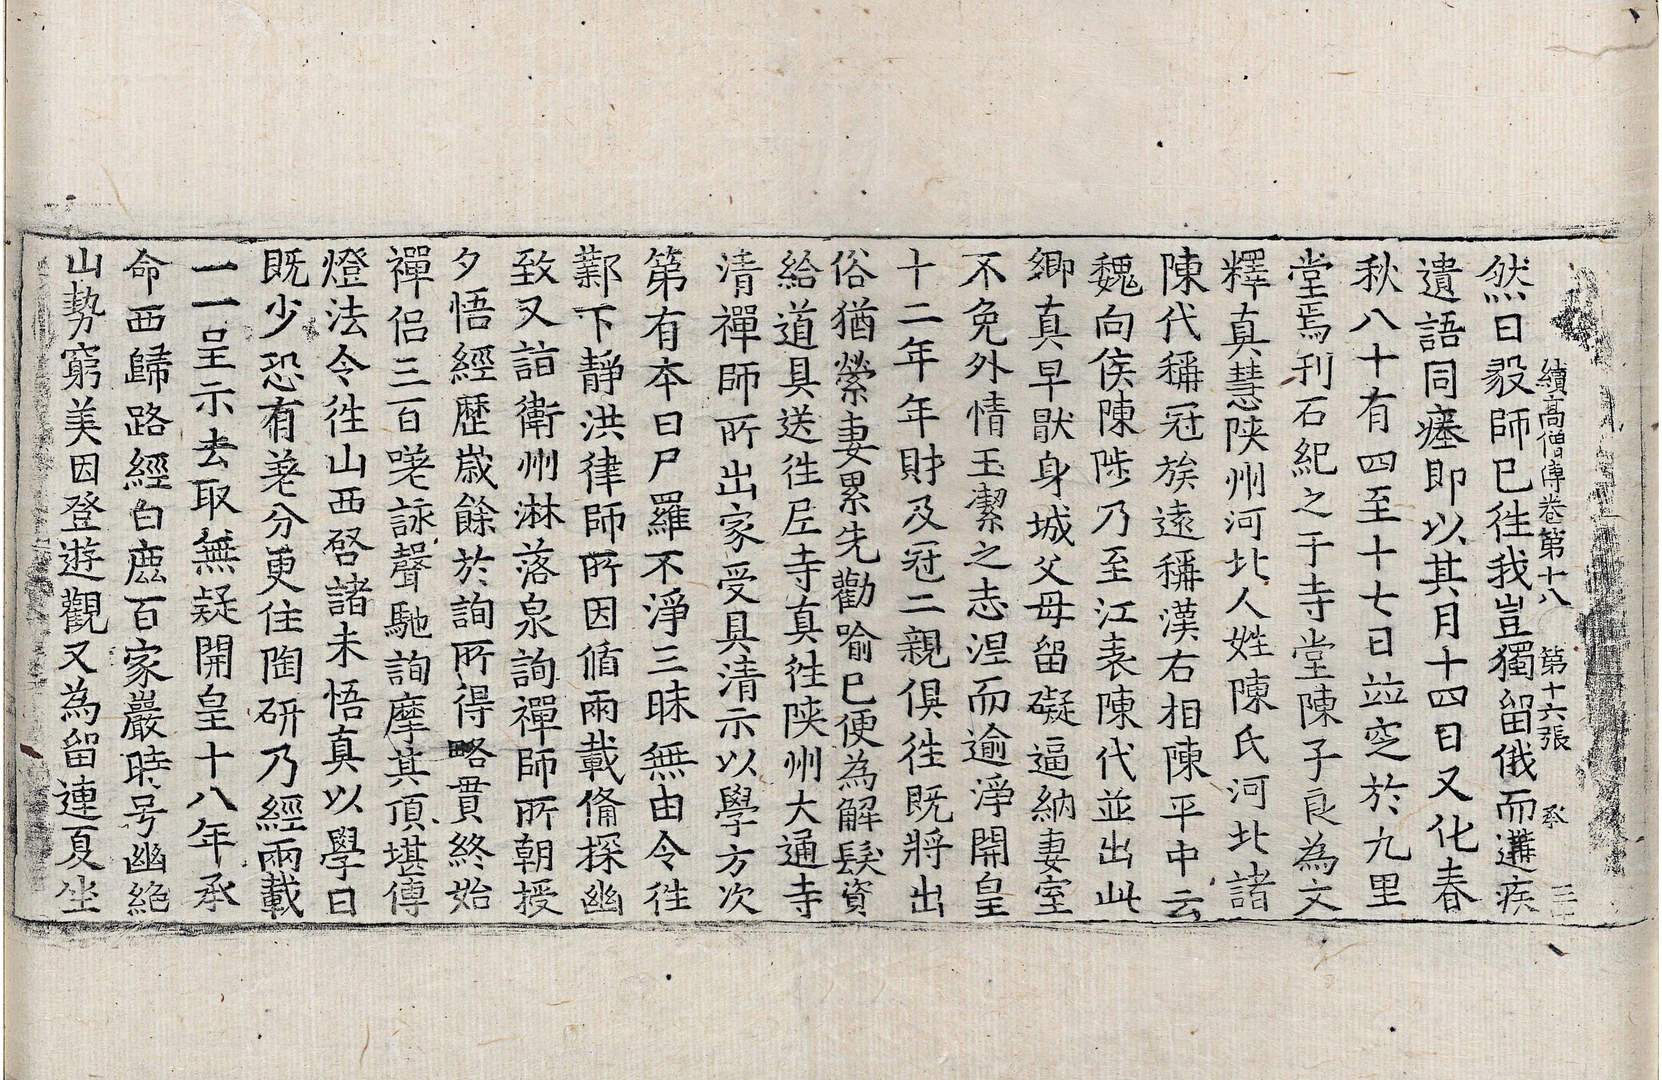 續高僧傳卷第十八　第十六張　承
然曰毅師已往我豈獨留俄而遘疾
遺語同瘞即以其月十四日又化春
秋八十有四至十七日竝窆於九里
堂焉刊石紀之于寺堂陳子良為文
釋真慧陝州河北人姓陳氏河北諸
陳代稱冠族遠稱漢右相陳平中云
魏向侯陳陟乃至江表陳代並出此
鄉真早猒身城父母留礙逼納妻室
不免外情玉潔之志涅而逾淨開皇
十二年年財及冠二親俱往既將出
俗猶縈妻累先勸喻已便為解髮資
給道具送往尼寺真往陝州大通寺
清禪師所出家受具清示以學方次
第有本曰尸羅不淨三昧無由令往
鄴下靜洪律師所因循兩載備探幽
致又詣衛州淋落泉詢禪師所朝授
夕悟經歷歲餘於詢所得略貫終始
禪侶三百嘆詠聲馳詢摩其頂堪傳
燈法令往山西啓諸未悟真以學日
既少恐有差分更住陶研乃經兩載
一一呈示去取無疑開皇十八年承
命西歸路經白鹿百家巖時号幽絕
山勢窮美因登遊觀又為留連夏坐